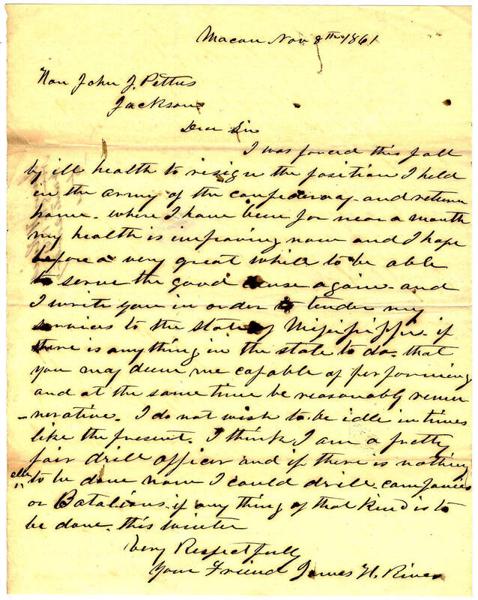 Macon Nov 8th 1861
Hon John J. Pettus
Jackson
Dear Sir
I was forced this fall
by ill health to resign the position I held
in the army of the confederacy and return
home. where I have been for near a month
my health is improving now and I hope
before a very great while to be able
to serve the good cause again. and
I write you in order to tender my
services to the state of Mississippi if
there is anything in the state to do. that
you may deem me capable of performing
and at the same time be reasonably remu
-nerative. I do not wish to be idle in times
like the present. I think I am a pretty
fair drill officer and if there is nothing
else to be done now I could drill companies
or Batalions if any thing of that kind is to
be done. this winter
Very Respectfully
Your Friend James H. Rives